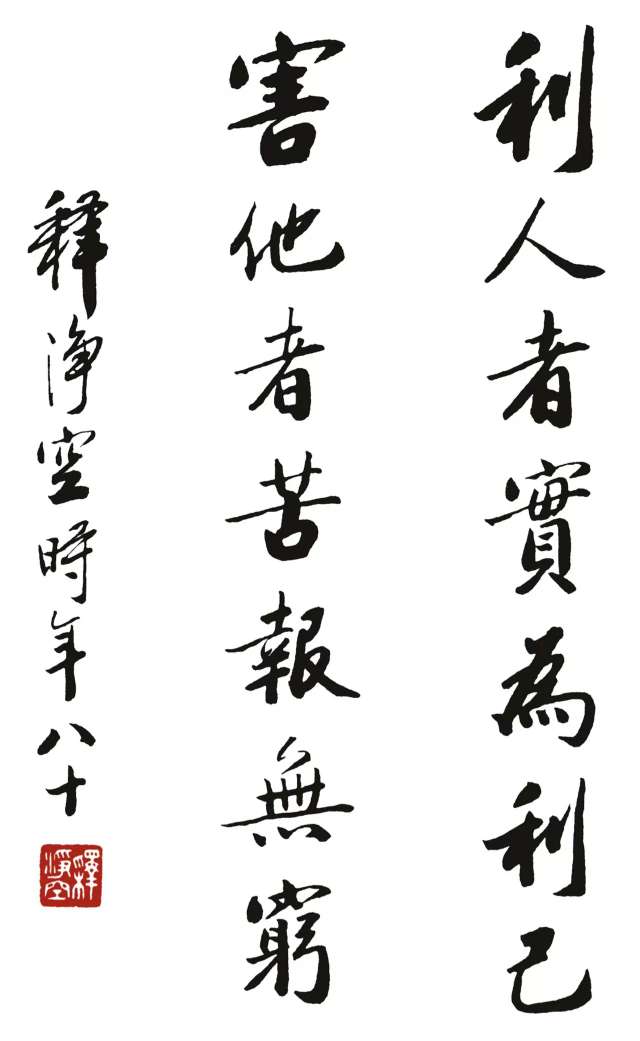 利人者實為利己
害他者苦報無窮
釋淨空時年八十
釋淨空